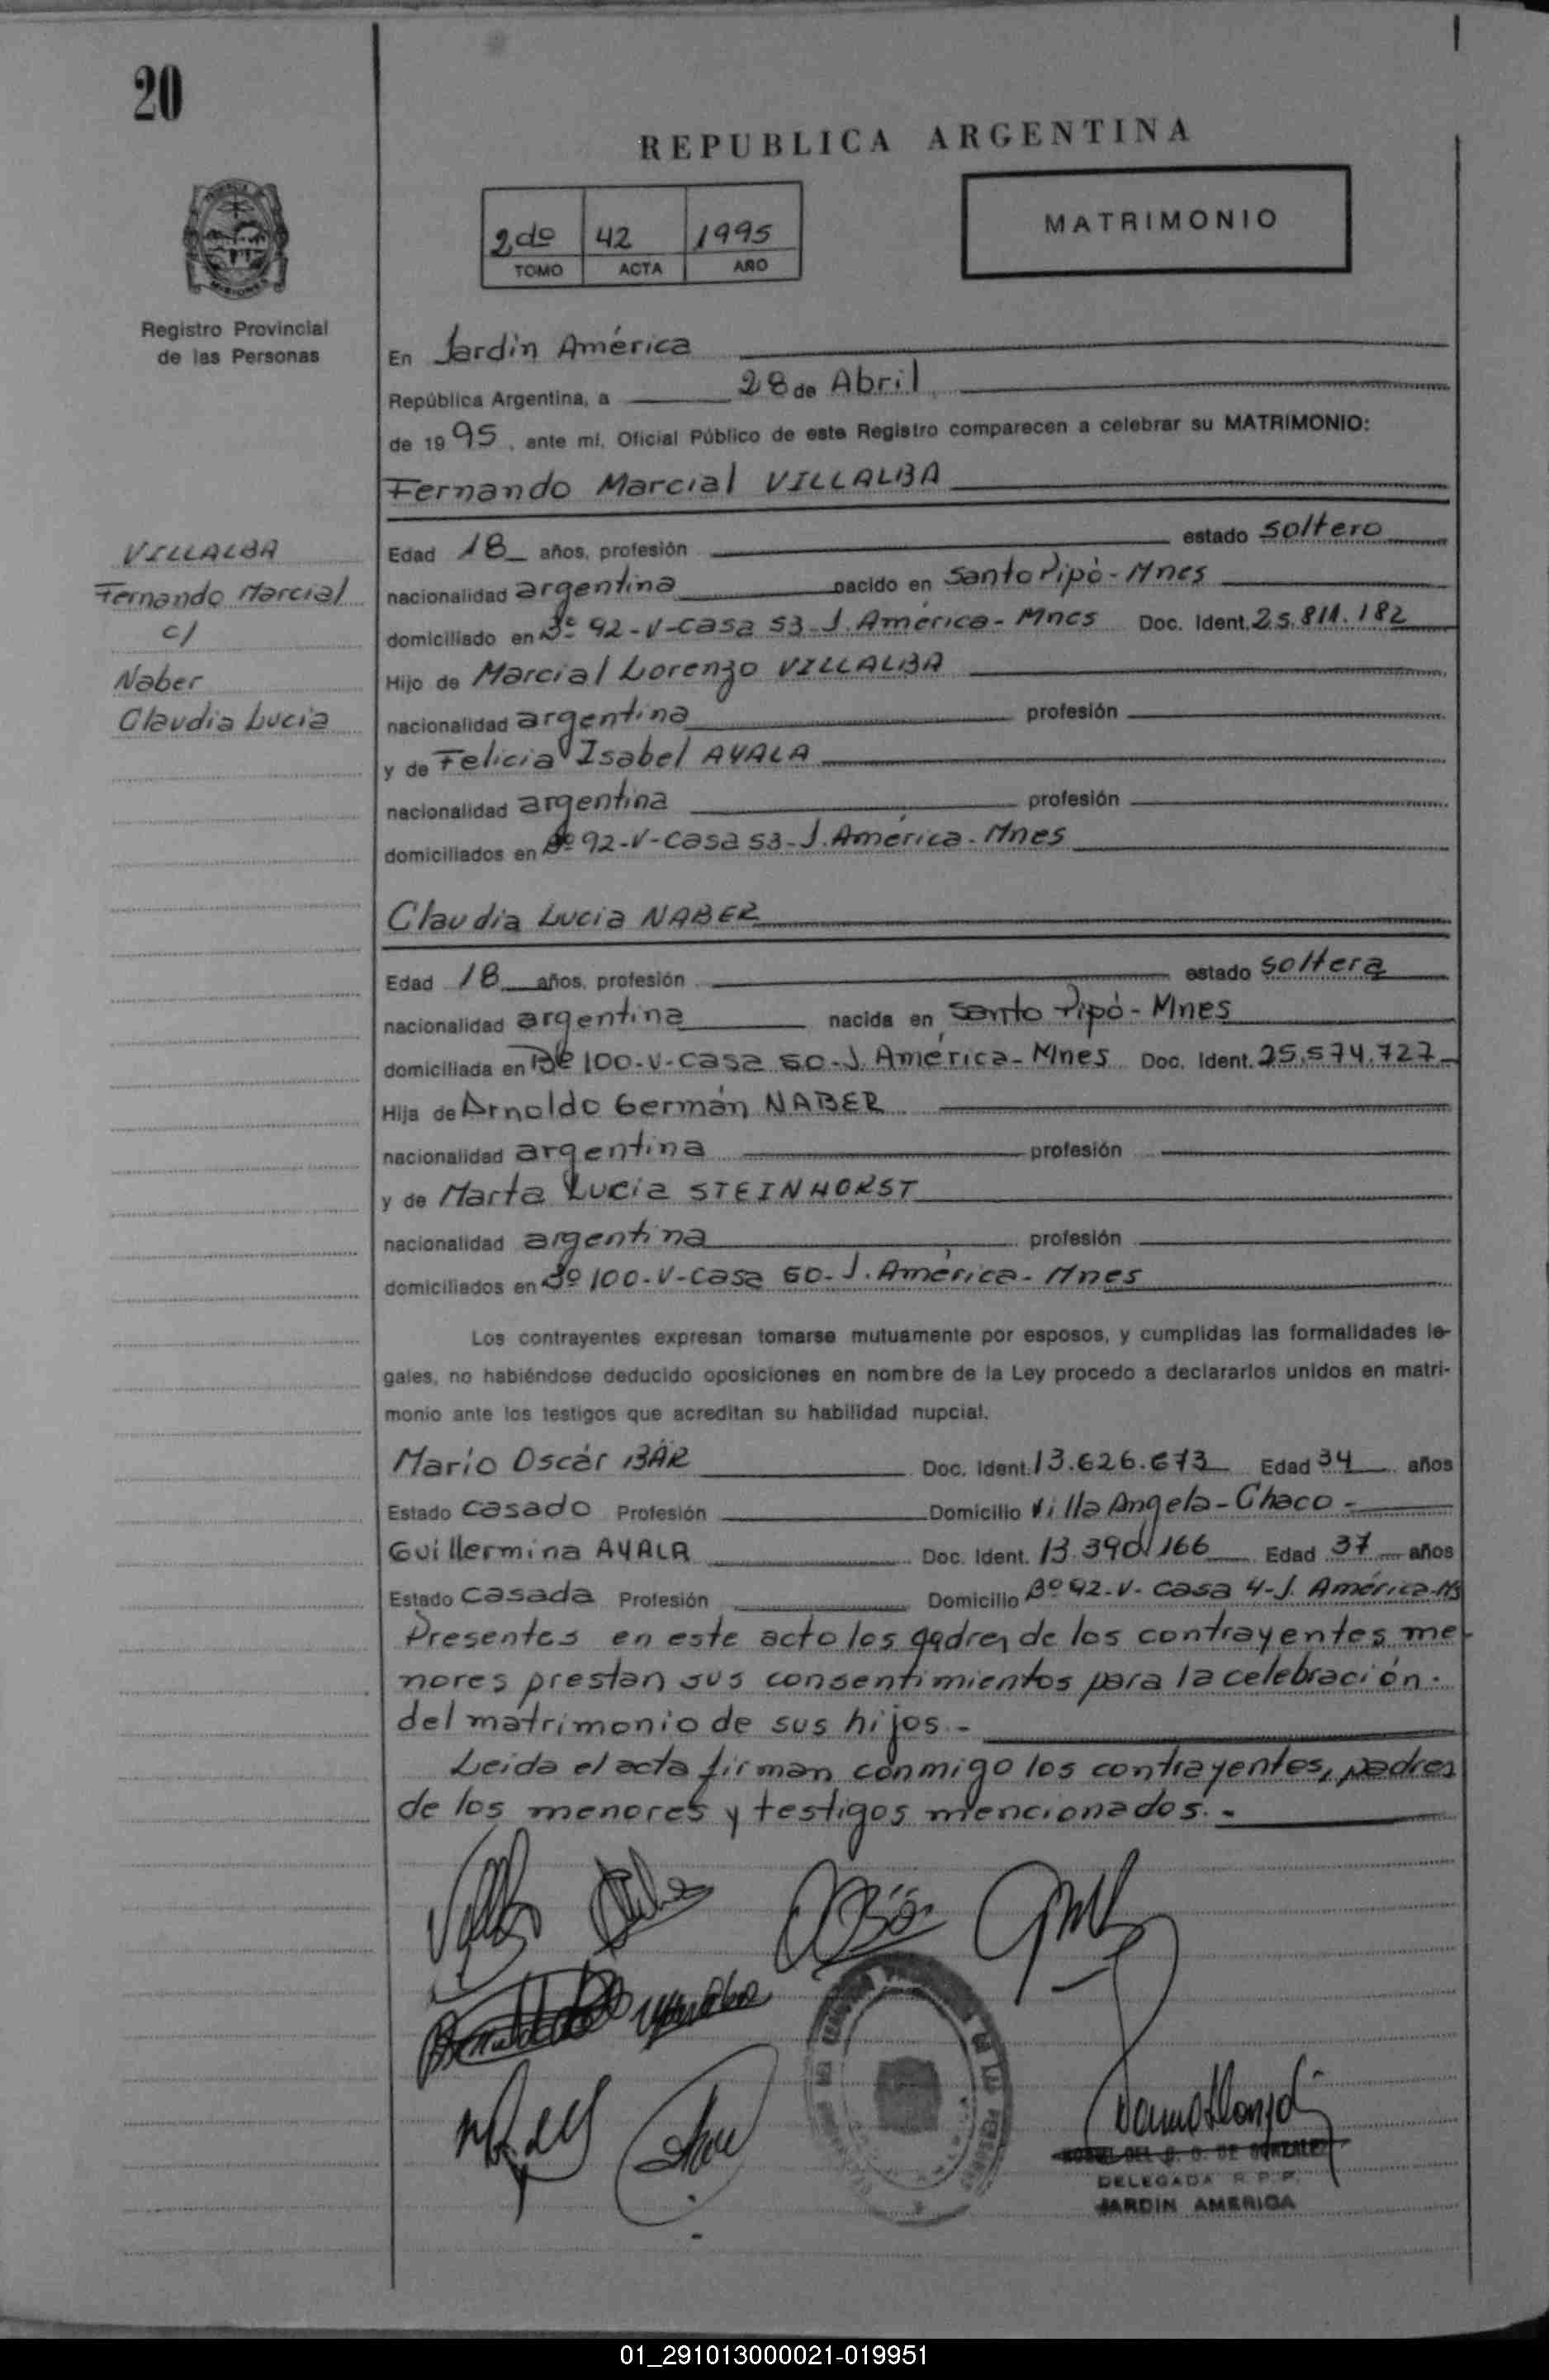 20
REPUBLICA ARGENTINA
2do 42 1995
TOMO ACTA AÑO
MATRIMONIO
Registro Provincial
de las Personas
En Jardín América
República Argentina, a 28 de Abril
de 1995, ante mí, Oficial Público de este Registro comparecen a celebrar su MATRIMONIO:
Fernando Marcial VILLALBA
VILLALBA
Fernando Marcial
c/
Naber
Claudia Lucia
Edad 18 años, profesión estado soltero
nacionalidad argentina nacido en Santo Pipó - Mnes
domiciliado en Bº 92-V-casa 53-J. América - Mnes Doc. Ident. 25.811.182
Hijo de Marcial Lorenzo VILLALBA
nacionalidad argentina profesión
y de Felicia Isabel AYALA
nacionalidad argentina profesión
domiciliados en Bº 92-V-casa 53-J. América - Mnes
Claudia Lucia NABER
Edad 18 años, profesión estado soltera
nacionalidad argentina nacida en Santo Pipó - Mnes
domiciliada en Bº 100-V-casa 60-J. América - Mnes Doc. Ident. 25.574.727
Hija de Arnoldo Germán NABER
nacionalidad argentina profesión
y de Marta Lucia STEINHORST
nacionalidad argentina profesión
domiciliados en Bº 100-V-casa 60-J. América - Mnes
Los contrayentes expresan tomarse mutuamente por esposos, y cumplidas las formalidades le-
gales, no habiéndose deducido oposiciones en nombre de la Ley procedo a declararlos unidos en matri-
monio ante los testigos que acreditan su habilidad nupcial.
Mario Oscár BÄR Doc. Ident. 13.626.673 Edad 34 años
Estado casado Profesión Domicilio Villa Angela - Chaco -
Guillermina AYALA Doc. Ident. 13.390.166 Edad 37 años
Estado casada Profesión Domicilio Bº 92-V- casa 4-J. América-Ms
Presentes en este acto los padres de los contrayentes me-
nores prestan sus consentimientos para la celebración.
del matrimonio de sus hijos.-
Leida el acta firman conmigo los contrayentes, padres
de los menores y testigos mencionados.-
DELEGADA R.P.P.
JARDIN AMERICA
01_291013000021-019951